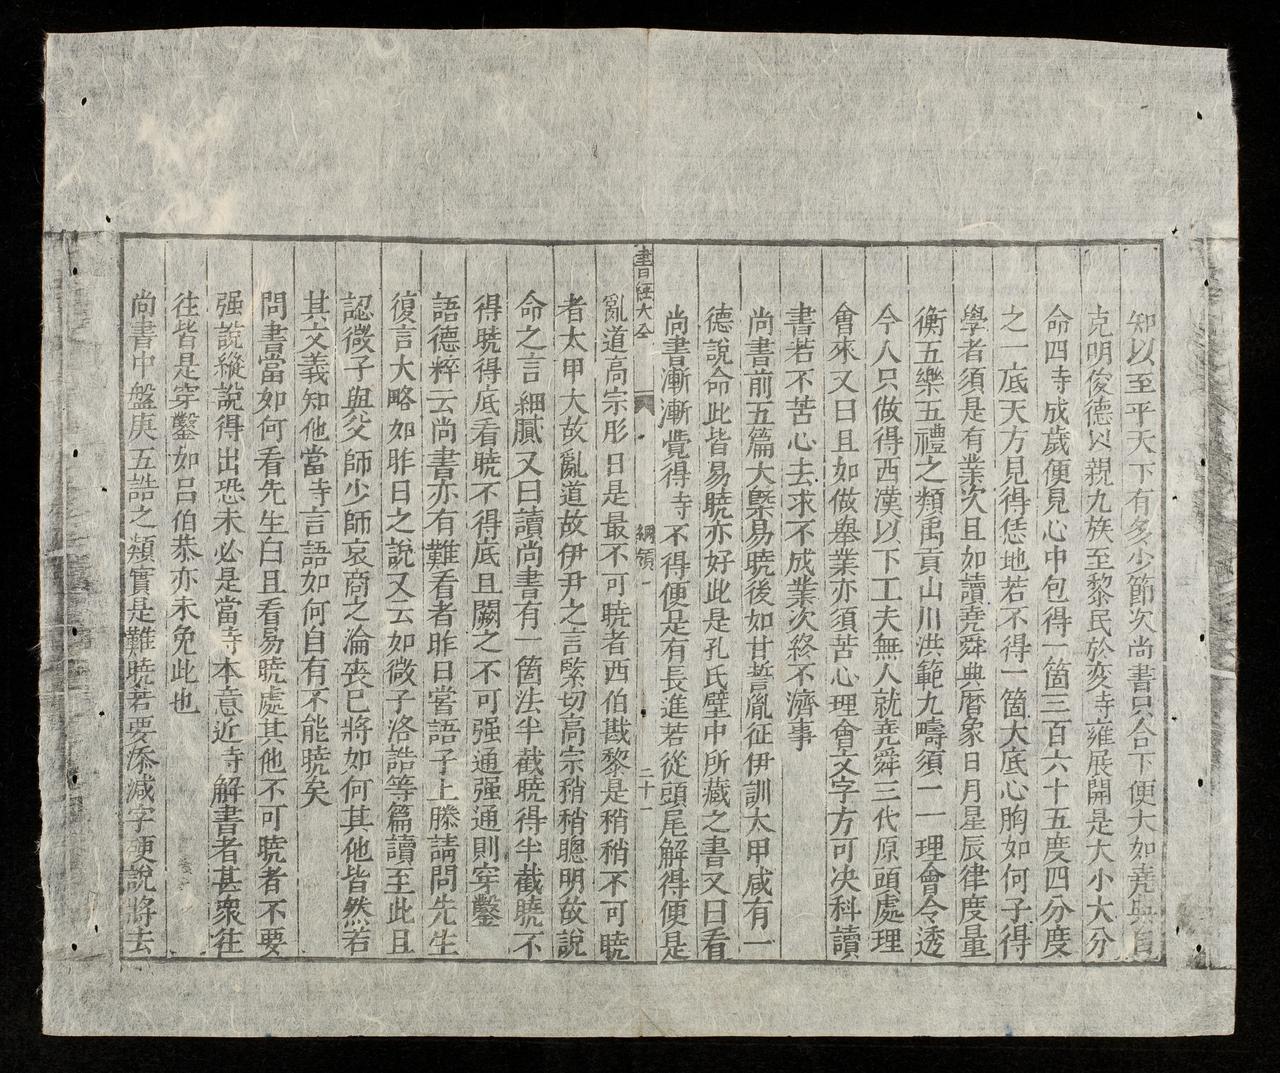 知以至平天下有多少節次尚書只合下便大如堯典自
克明俊德以親九族至黎民於変時雍展開是大小大分
命四時成歲便見心中包得一箇三百六十五度四分度
之一底天方見得恁地若不得一箇大底心胸如何子得
學者須是有業次且如讀堯舜典曆象日月星辰律度量
衡五樂五禮之類禹貢山川洪範九疇須一一理會令透
今人只做得西漢以下工夫無人就堯舜三代原頭處理
會來又曰且如做舉業亦須苦心理會文字方可决科讀
書若不苦心去求不成業次終不濟事
尚書前五篇大槩易曉後如甘誓胤征伊訓太甲咸有一
德說命此皆易曉亦好此是孔氏壁中所藏之書又曰看
尚書漸漸覺得寺不得便是有長進若從頭尾解得便是
書經大全 綱領 二十一
亂道高宗肜日是最不可曉者西伯戡黎是稍稍不可曉
者太甲大故亂道故伊尹之言緊切高宗稍稍聰明故說
命之言細膩又曰讀尚書有一箇法半截曉得半截曉不
得曉得底看曉不得底且闕之不可强通强通則穿鑿
語德粹云尚書亦有難看者昨日嘗語子上滕請問先生
復言大略如昨日之說又云如微子洛誥等篇讀至此且
認微子與父師少師哀商之淪喪已將如何其他皆然若
其文義知他當寺言語如何自有不能曉矣
問書當如何看先生曰且看易曉處其他不可曉者不要
强說縱說得出恐未必是當寺本意近寺解書者甚衆往
往皆是穿鑿如吕伯恭亦未免此也
尚書中盤庚五誥之類實是難曉若要添减字硬說將去